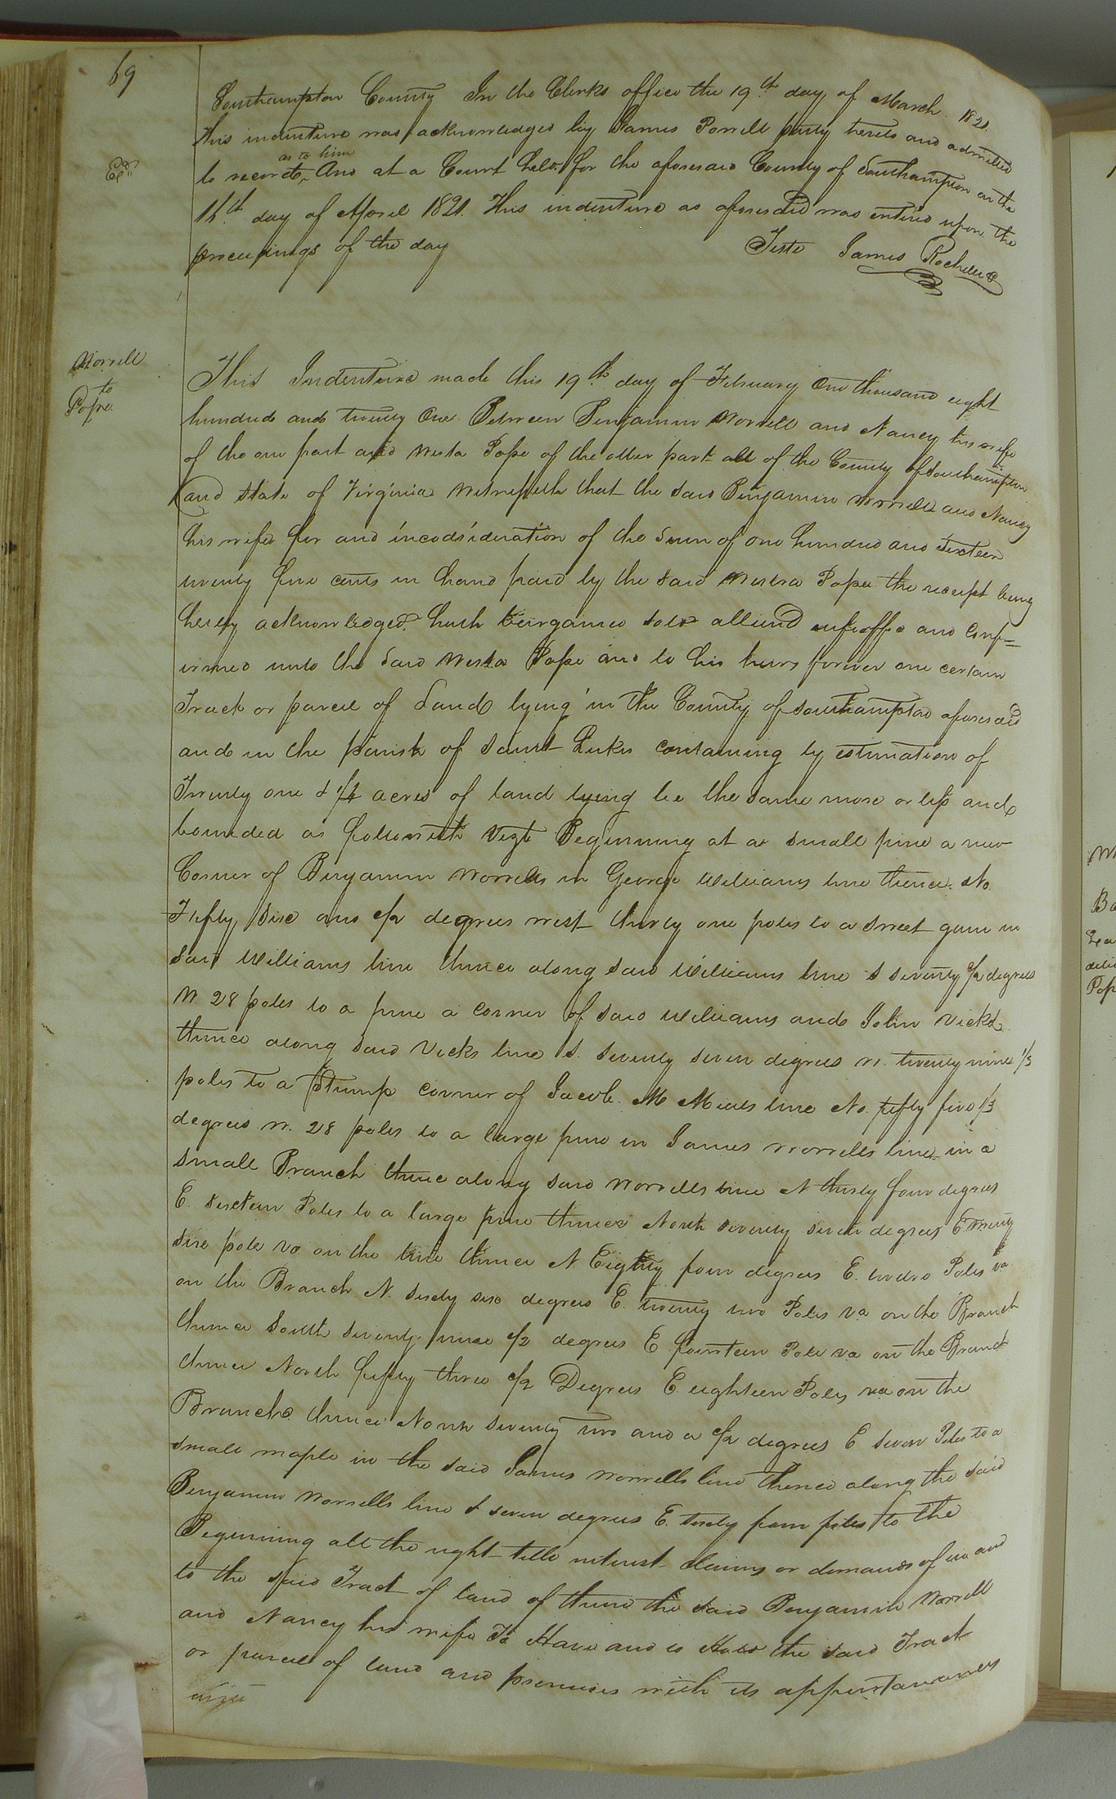 69
Southampton County In the Clerks office the 19th day of March 1821
This indenture was acknowledged by James Porrell party hereto and admitted
as to him
to record, And at a Court held for the aforesaid County of Southampton on the
Exd
16th day of April 1821. This indenture as aforesaid was entired upon the
proceedings of the day
Teste James Rochelle
Worrell
to
Pope
This Indenture made this 19th day of February One thousand eight
hundred and twenty One Between Benjamin Worrell and Nancy his wife
of the one part and Westa Pope of the other part all of the County of Southampton
and State of Virginia Witnesseth that the said Benjamin Worrell and Nancy
his wife for and in consideration of the Sum of one hundred and sixteen
twenty five cents in hand paid by the said Westra Pope the receipt being
hereby acknowledged hath bargained sold aliend enfeoffed and Conf=
irmed unto the Said Westra Pope and to his heirs forever one certain
Tract or parcel of Land lying in the County of Southampton aforesaid
and in the parish of Saint Lukes containing by estimation of
Twenty one & 1/4 acres of land lying be the same more or less and
bounded as followeth Vizt Beginning at a small pine a new
Corner of Benjamin Worrells in George Williams line thence No.
Fifty Six and 1/2 degrees west thirty one poles to a Sweet gum in
said Williams line thence along said Williams line S seventy 1/2 degrees
W. 28 poles to a pine a corner of said Williams and John Vicks
thence along said Vicks line S. seventy seven degrees W. twenty nine 1/3
poles to a Stump corner of Jacob M line No. fifty five 1/3
degrees W. 28 poles to a large pine in James Worrells line in a
small Branch thence along said Worrells line N thirty four degrees
E. sixteen Poles to a large pine thence North seventy seven degrees E twenty
six pole va on the line thence N Eighty four degrees E. twelve Poles va
on the Branch N. sixty six degrees E. twenty two Poles va on the Branch
thence South seventy nine 1/2 degrees E fourteen Pole va on the Branch
thence North fifty three 1/2 Degrees E eighteen Poles va on the
Branch thence North seventy two and a 1/2 degrees E seven Poles to a
small maple in the said James Worrells line thence along the said
Benjamin Worrells line S seven degrees E. sixty four poles to the
Beginning all the right title interest claims or demands of in and
to the said Tract of land of theirs the said Benjamin Worrell
and Nancy his wife To Have and to Hold the said Tract
or parcel of land and premises with its appurtanances